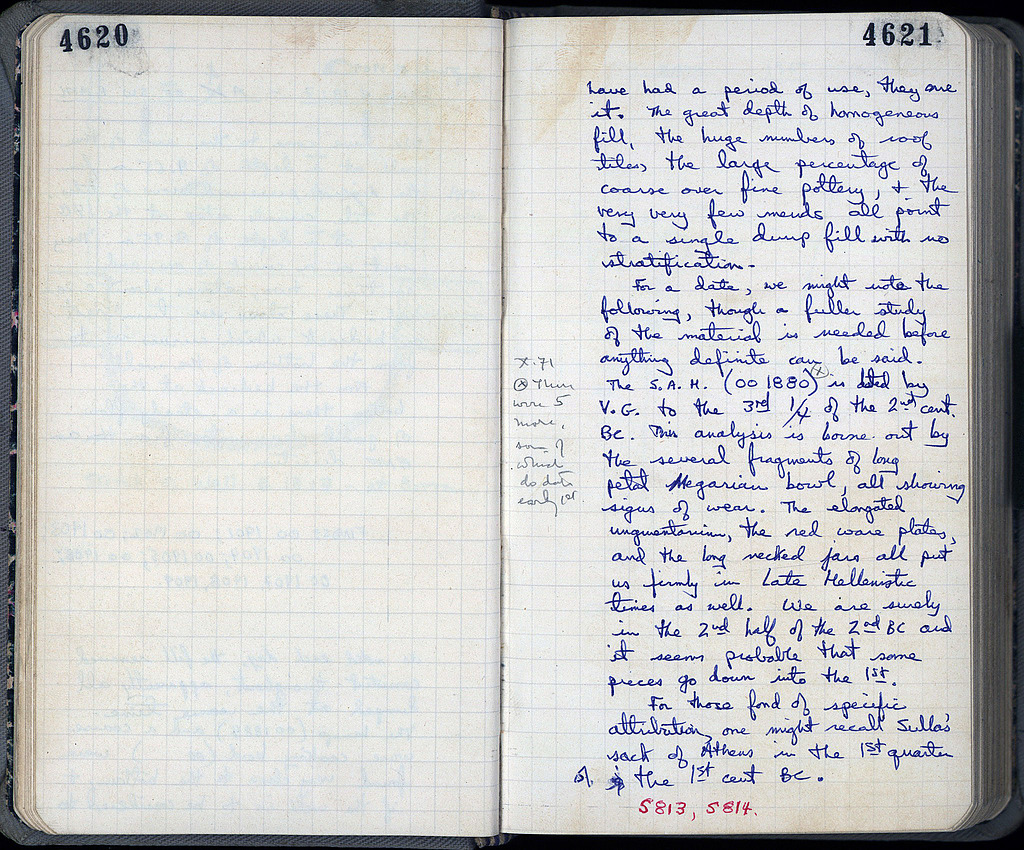 4620
4621
have had a period of use, they are
it. The great depth of homogeneous
fill, the huge numbers of roof
tiles, the large percentage of
coarse over fine pottery, + the
very very few mends all point
to a single dump fill with no
stratification.
For a date, we might note the
following, though a fuller study
of the material is needed before
anything definite can be said.
The S.A.H. (OO 1880) (x) is dated by
V.G. to the 3rd 1/4 of the 2nd cent.
BC. This analysis is borne out by
the several fragments of long
petal Megarian bowl, all showing
signs of wear. The elongated
unguentarium, the red ware plates,
and the long necked jars all put
us firmly in Late Hellenistic
times as well. We are surely
in the 2nd half of the 2nd BC and
it seems probable that some
pieces go down into the 1st.
For those fond of specific
attribution, one might recall Sulla's
sack of Athens in the 1st quarter
of the 1st cent BC.
5813, 5814.
X.71
(x) There
were 5
more,
some of
which
do date
early 1st.